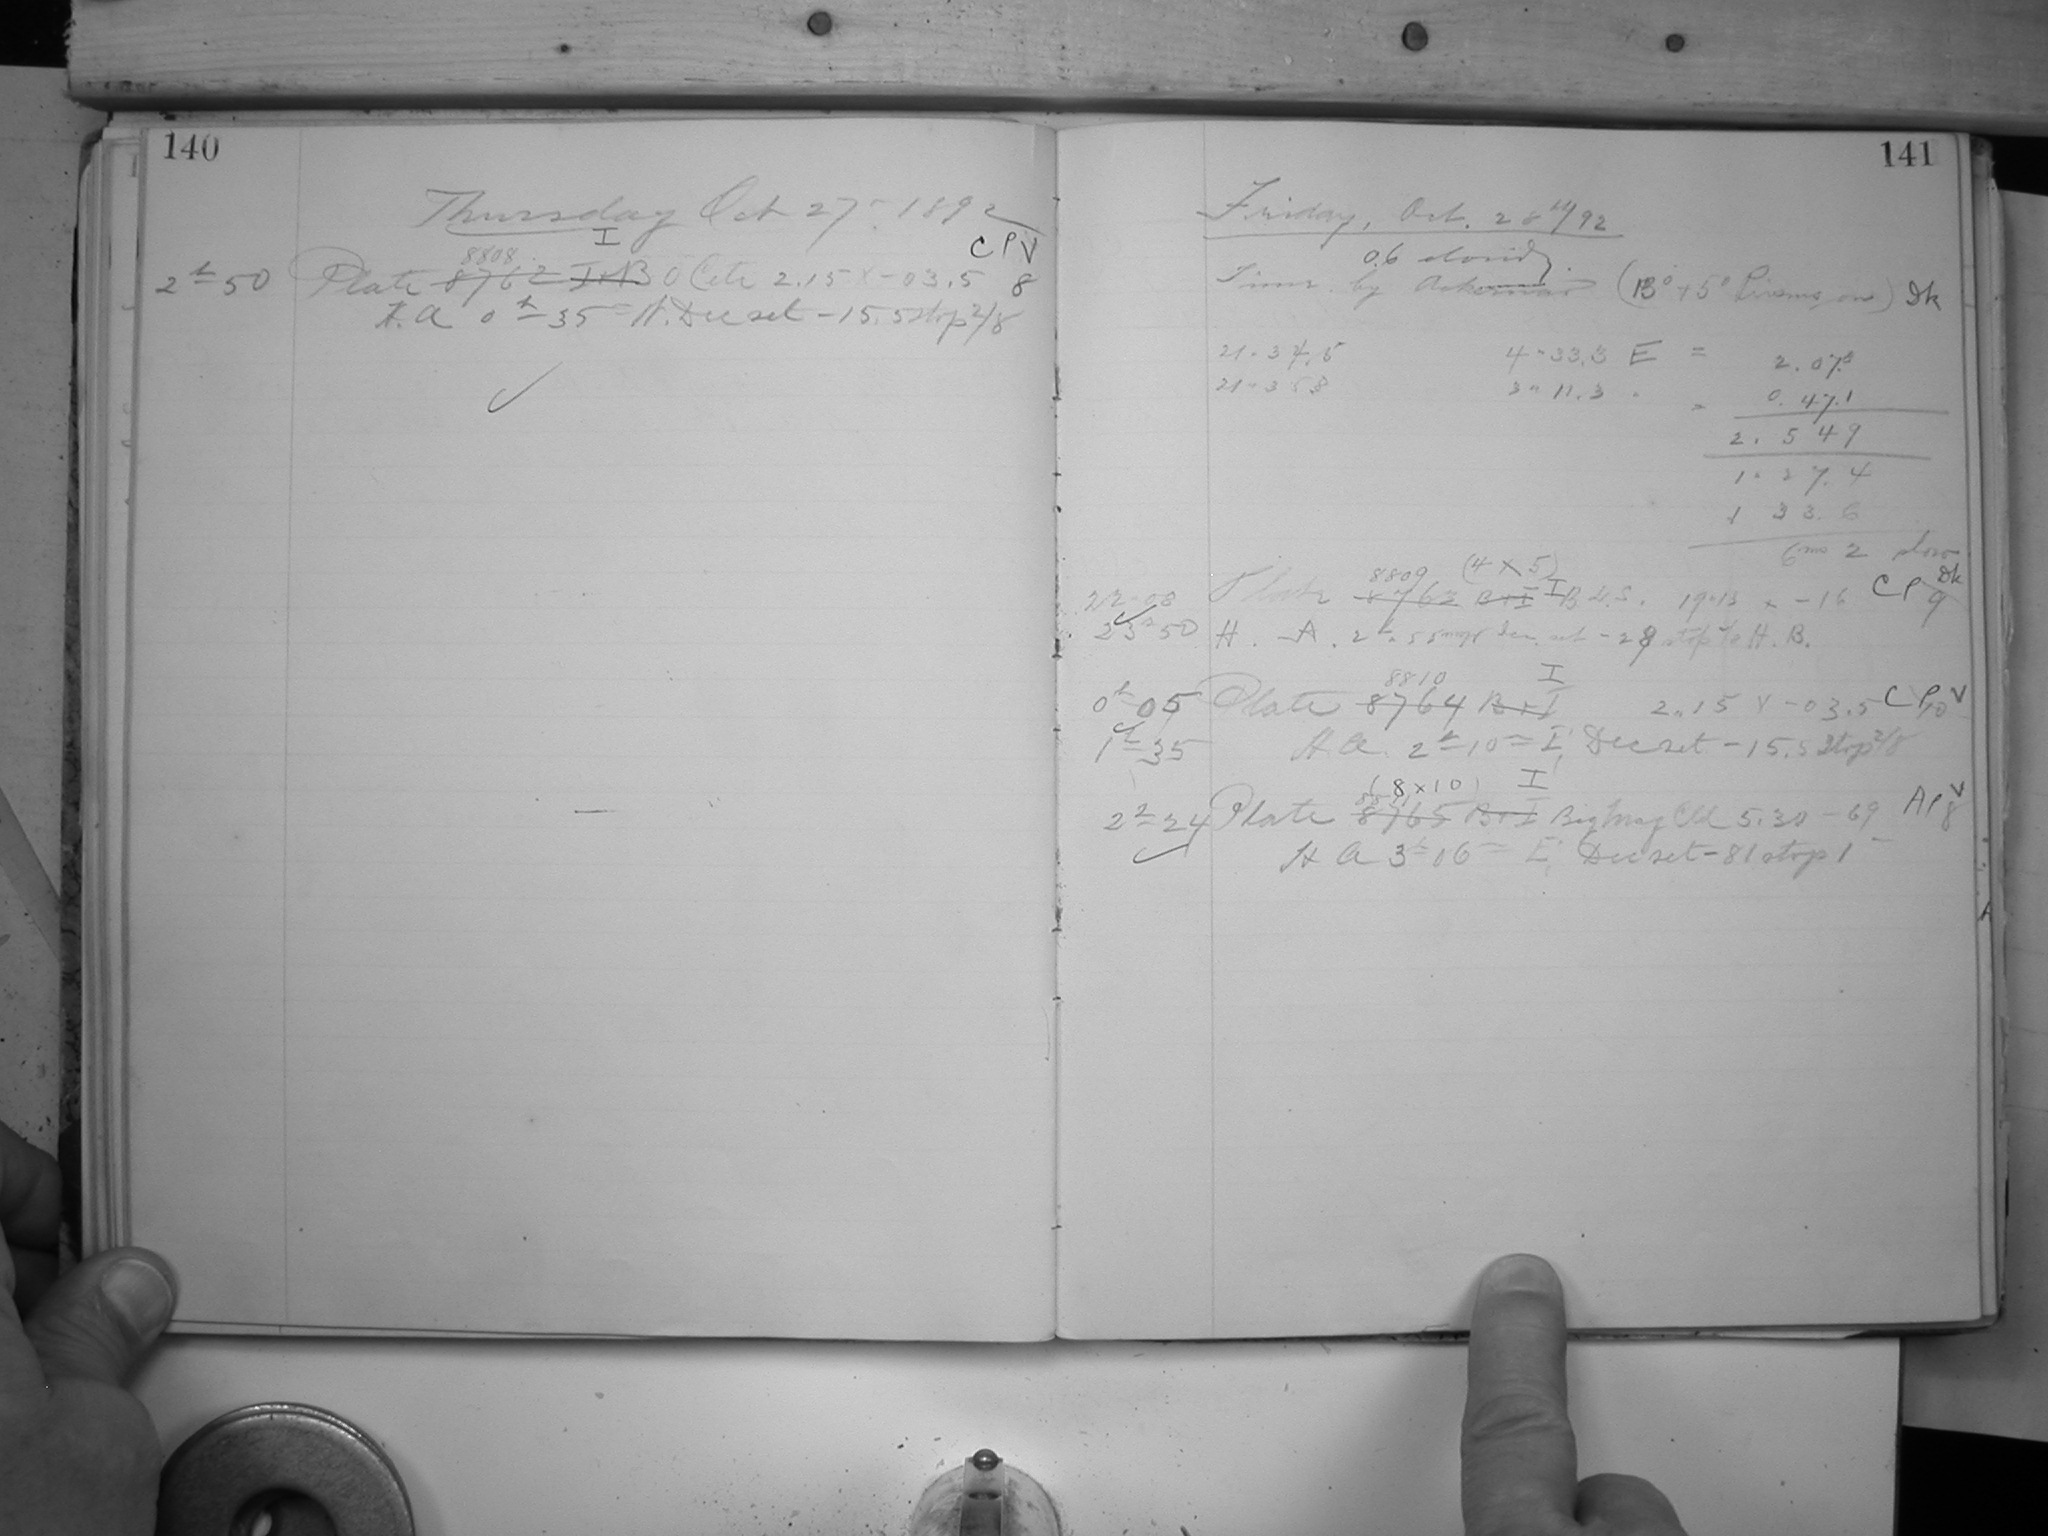 140
Thursday Oct 27 1892
I
C P V
8808
2h 50 Plate 8762 I+B O Ceti 2.15 × -03.5 8
H.A 0h-35m H. Dec set -15.5 stop 2/8
141
Friday, Oct. 28th/92
0.6 cloudy
Time by (13°+5° Prisms on) Dk
21-34.5 4-33.3 E = 2.07.8
21-35.8 3-11.3 = 0.47.1
2.549
1-27.4
1 33.6
6ms 2 slow
8809 (4×5) I Dk
22-08 Plate 8763 B+I 19-13 × -16 C P 9
23h50 H. A. Dec. set -28 stop H. B.
8810 I
0h-05 Plate 8764 B+I 2.15 × -03.5 C P V 10
1h-35 H.A. 2h-10m E, Dec set -15.5 Stop 2/8
(8×10) I
2h-24 Plate 8765 B+I Big Mag Cld 5.30 -69 A P V 8
H A 3h-06m E, Dec set -81 stop 1